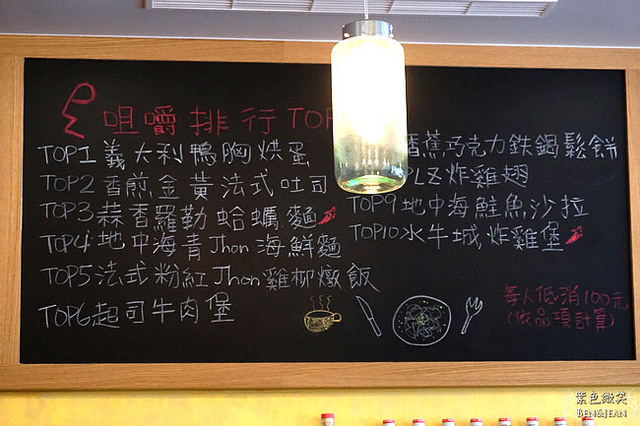 咀嚼排行TOP
TOP1義大利鴨胸烘蛋
TOP2香煎金黃法式吐司
TOP3蒜香羅勒蛤蠣麵
TOP4地中海青Jhon海鮮麵
TOP5法式粉紅Jhon雞柳燉飯
TOP6起司牛肉堡
香蕉巧克力鉄鍋鬆餅
炸雞翅
TOP9地中海鮭魚沙拉
TOP10水牛城炸雞堡
每人低消100元
(依品項計算)
紫色微笑
BEN&JEAN